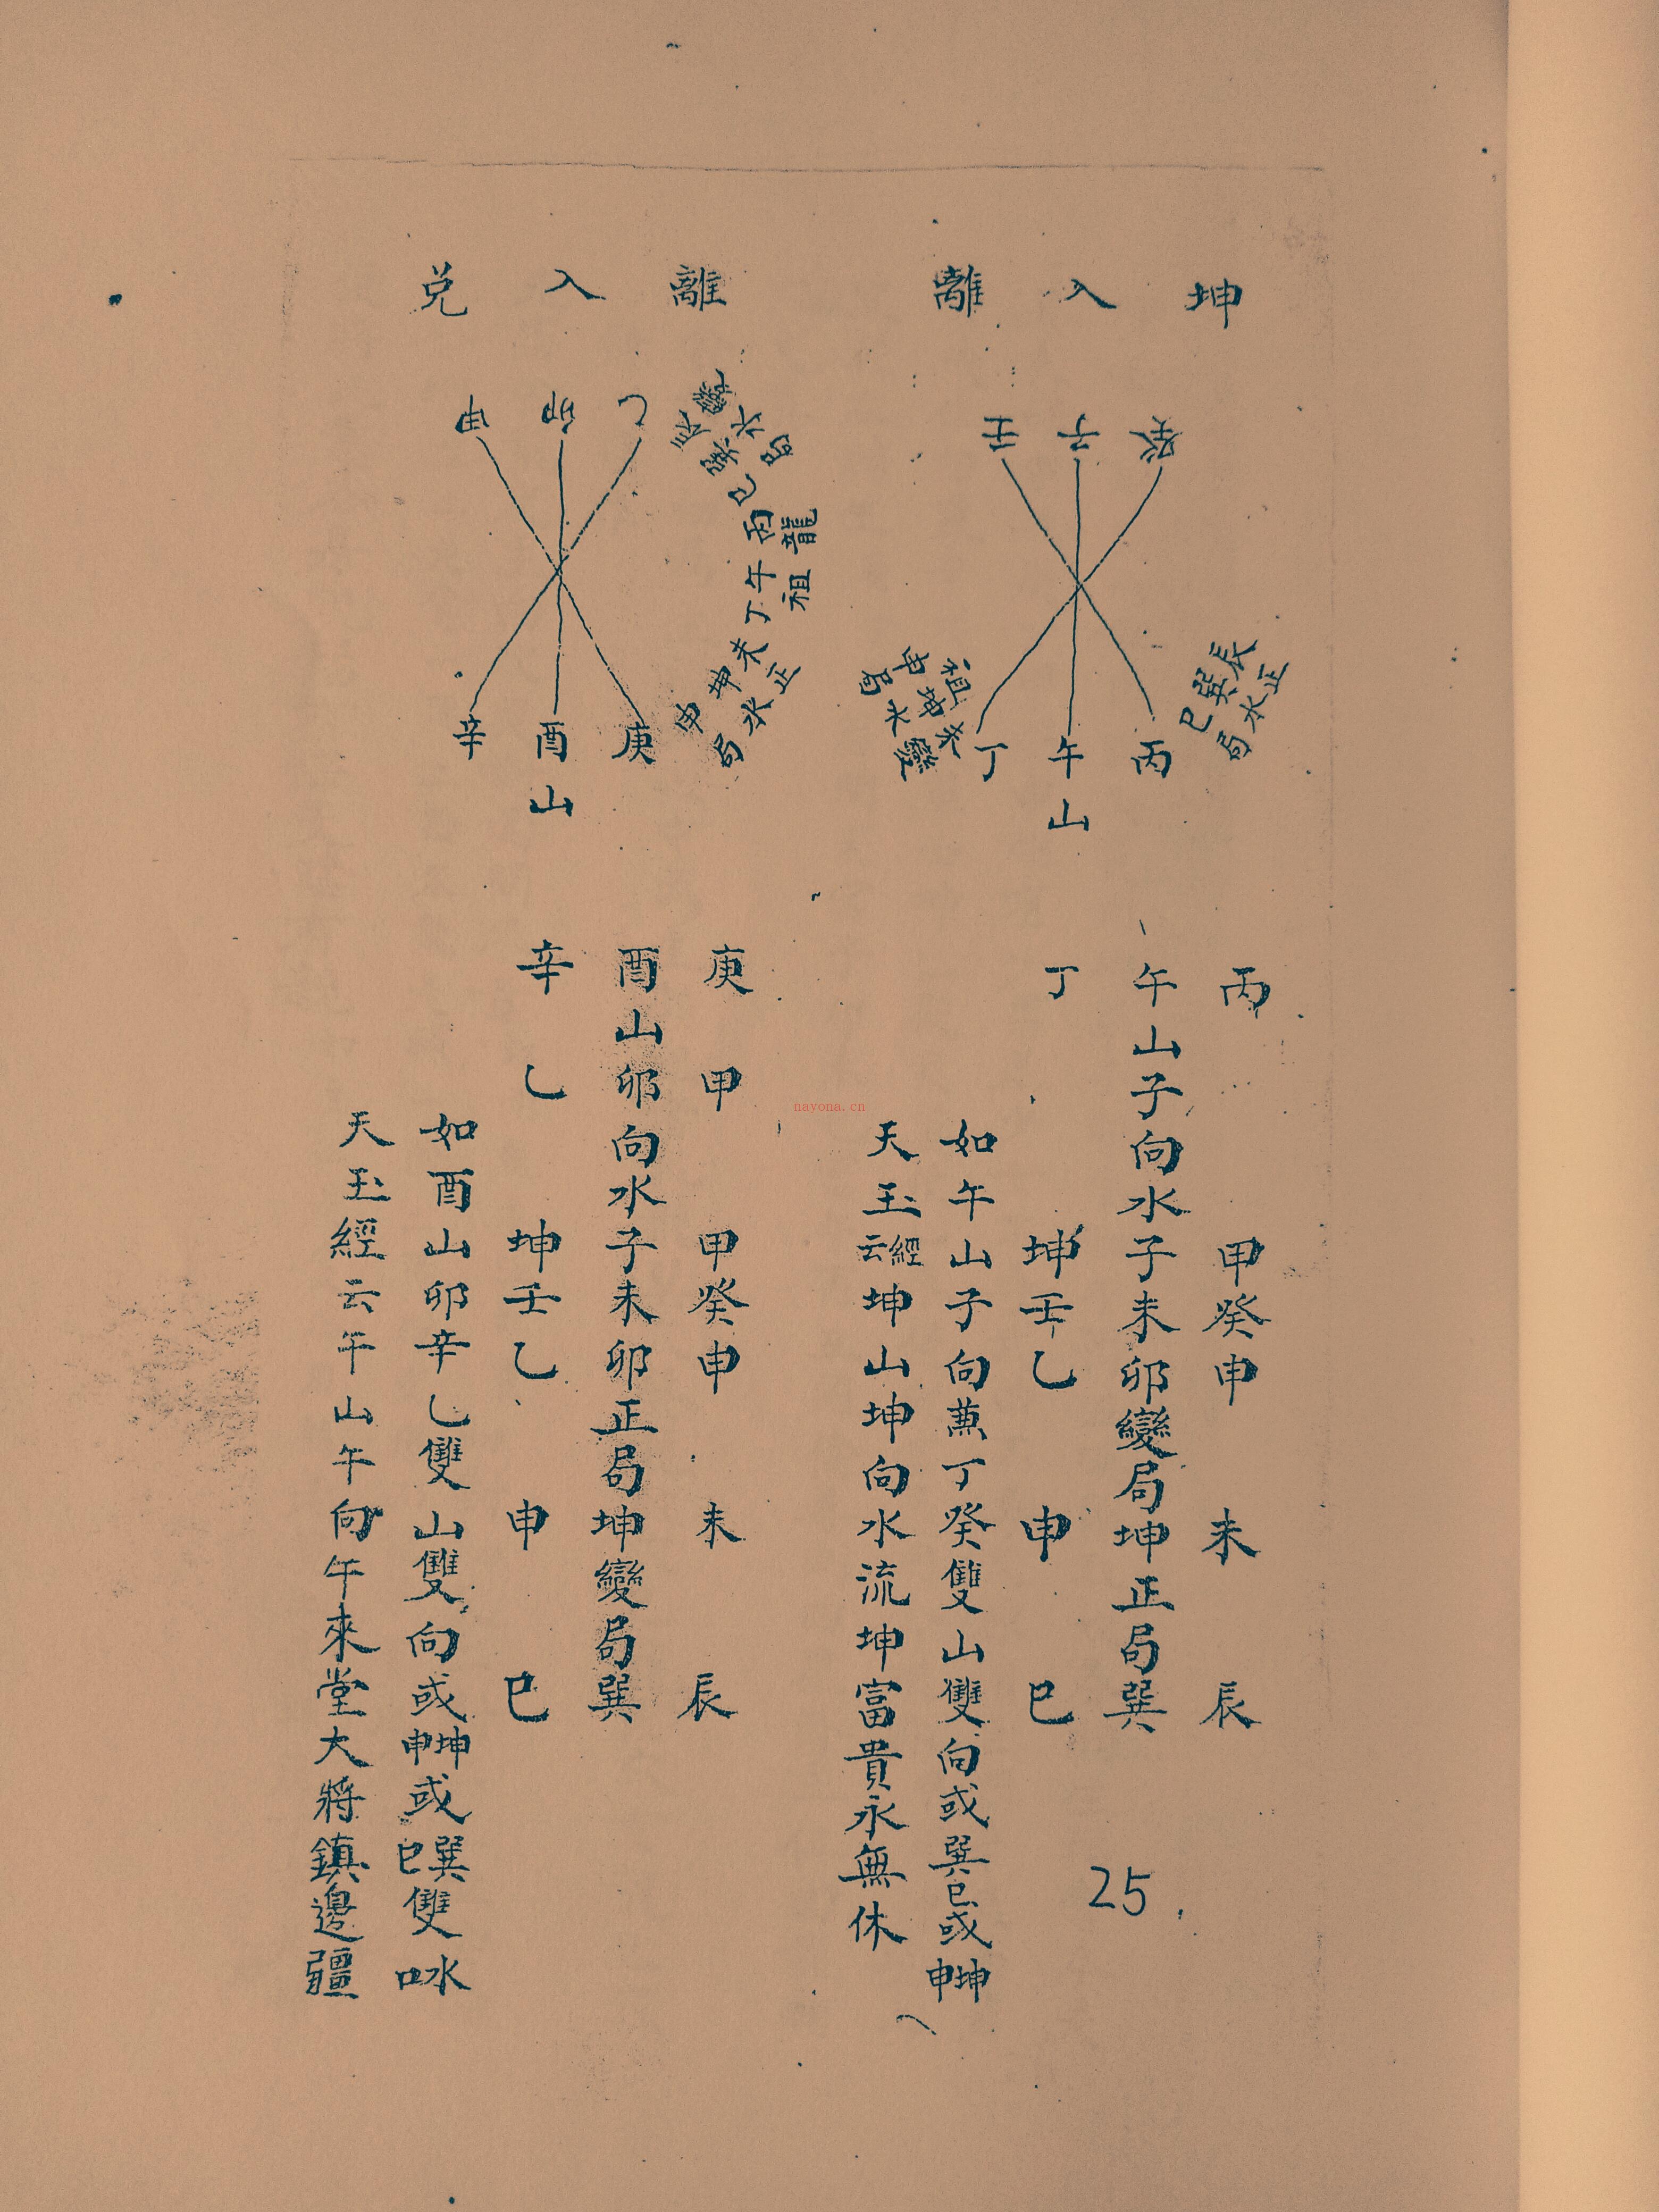 坤入離
癸子壬
辰巽巳
正水局
祖
未坤申
變水局
丙午丁
山
丙 甲癸申 未 辰
午山子向水子未卯變局坤正局巽
丁 坤壬乙 申 巳
如午山子向兼丁癸雙山雙向或巽巳或坤申
天玉經云坤山坤向水流坤富貴永無休
25
離入兌
乙卯甲
辰巽巳丙午丁未坤申
變水局
龍祖
正水局
庚酉辛
山
庚甲 甲癸申 未 辰
酉山卯向水子未卯正局坤變局巽
辛乙 坤壬乙 申 巳
如酉山卯辛乙雙山雙向或坤申或巽巳雙水口
天玉經云午山午向午來堂大將鎮邊疆
nayona.cn